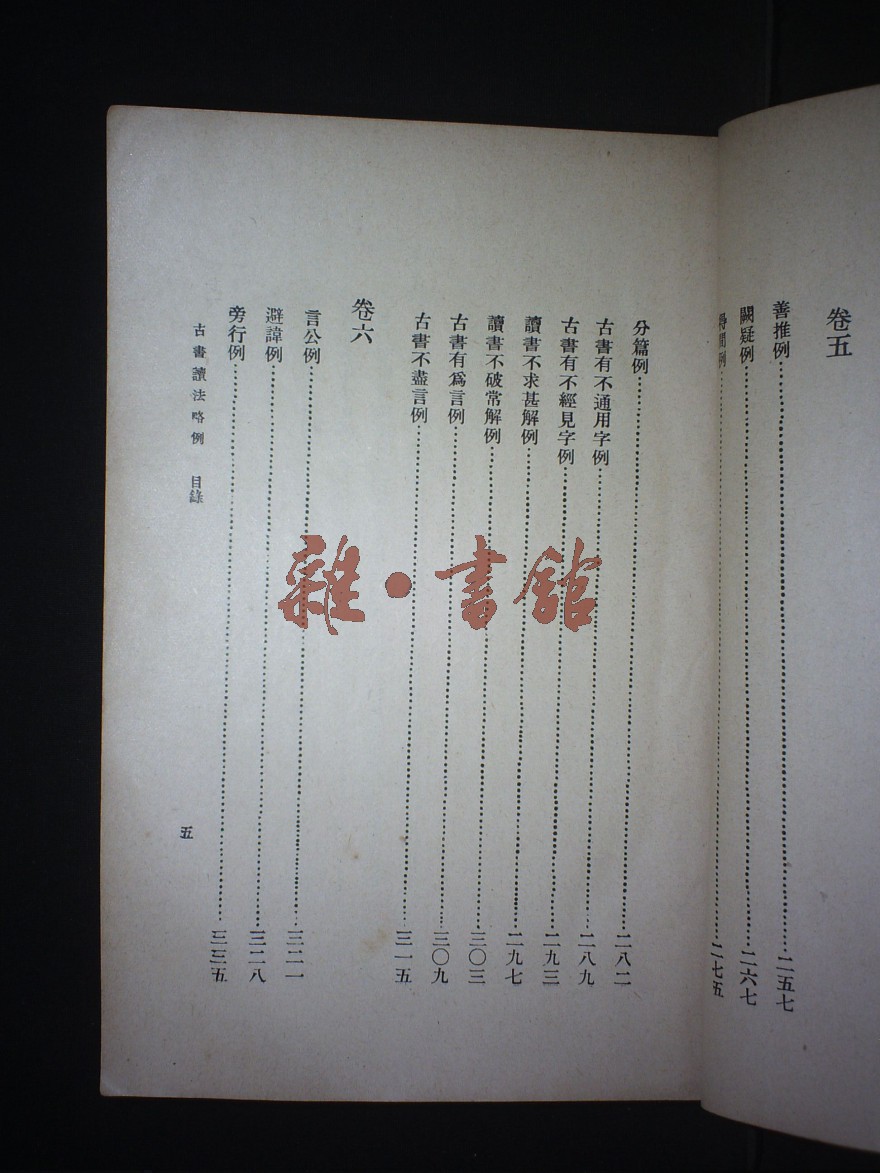 卷五
善推例……二五七
闕疑例……二六七
得間例……二七五
分篇例……二八二
古書有不通用字例……二八九
古書有不經見字例……二九三
讀書不求甚解例……二九七
讀書不破常解例……三〇三
古書有爲言例……三〇九
古書不盡言例……三一五
卷六
言公例……三二一
避諱例……三二八
旁行例……三三五
古書讀法略例 目錄
五
雜·書館